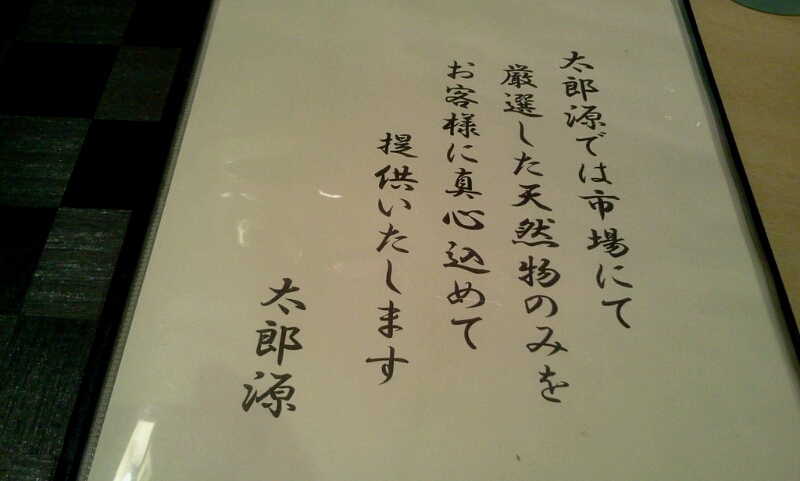 太郎源では市場にて
厳選した天然物のみを
お客様に真心込めて
提供いたします
太郎源